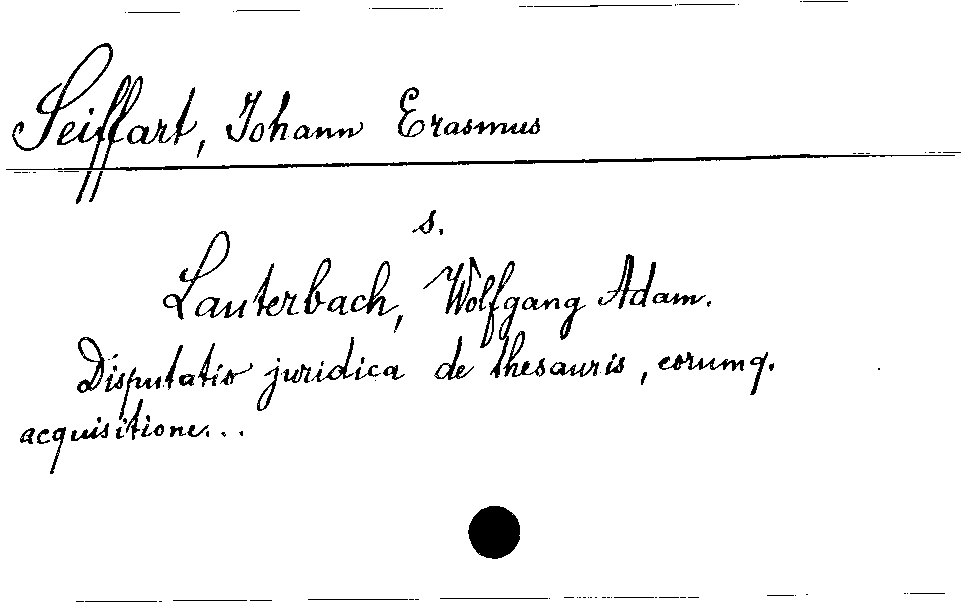 Seiffart, Johann Erasmus
s.
Lauterbach, Wolfgang Adam.
Disputatio juridica de thesauris, eorumq.
acquisitione...